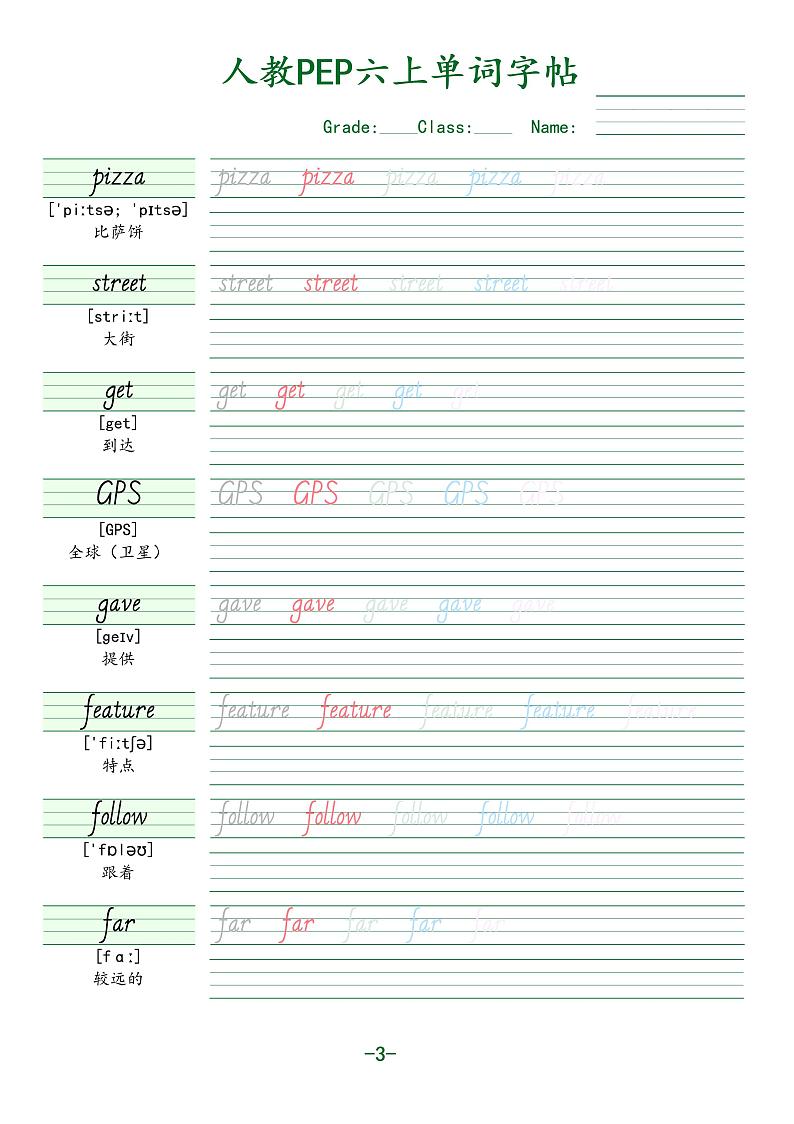 人教PEP六上单词字帖
Grade:____Class:____ Name:
pizza pizza pizza pizza pizza pizza
[ˈpiːtsə; ˈpɪtsə]
比萨饼
street street street street street street
[striːt]
大街
get get get get get get
[get]
到达
GPS GPS GPS GPS GPS GPS
[GPS]
全球（卫星）
gave gave gave gave gave gave
[geɪv]
提供
feature feature feature feature feature feature
[ˈfiːtʃə]
特点
follow follow follow follow follow follow
[ˈfɒləʊ]
跟着
far far far far far far
[fɑː]
较远的
-3-